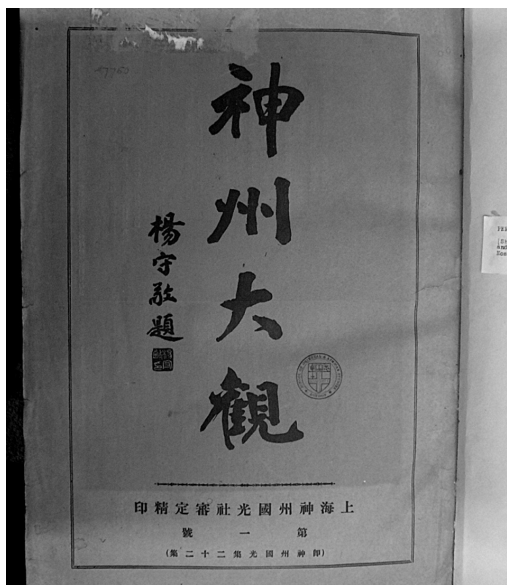 神州大觀
楊守敬題
上海神州國光社審定精印
第一號
(即神州國光集二十二集)